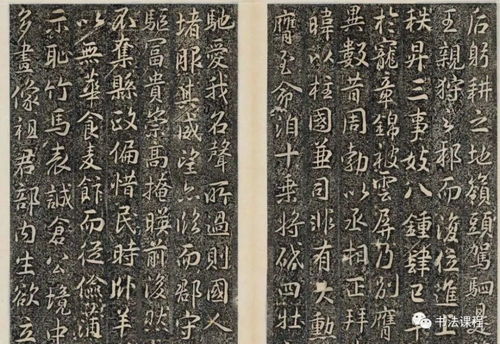 后躬耕之地嶺頭駕駟
王親狩之邦而復位進上
秩昇三事 八鍾肆已下
於寵章錦被雲屏乃別膺
異數昔周勃以丞相正拜
暐以柱國兼司非有大勳
膺 命洎十乘將 四牡
馳愛我名聲所過則國人
堵 其威望 臨而郡守
驅富貴崇高掩暎前後然
丕棄縣政偏惜民時卧羊
以無華食麦 而從儉蒲
示恥竹馬表誠倉公境中
多畫像祖君部内生欲立
书法课程